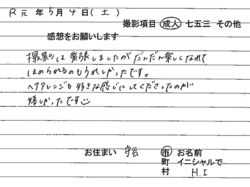 R元年5月4日(土)
撮影項目 成人 七五三 その他
感想をお願いします
撮影は緊張しましたがだんだん楽しくなれて
ほめられるのもうれしかったです。
ヘアアレンジも好きな感じにしてくださったのが
嬉しかったです
お住まい 市 お名前
町 イニシャルで
村 H.I